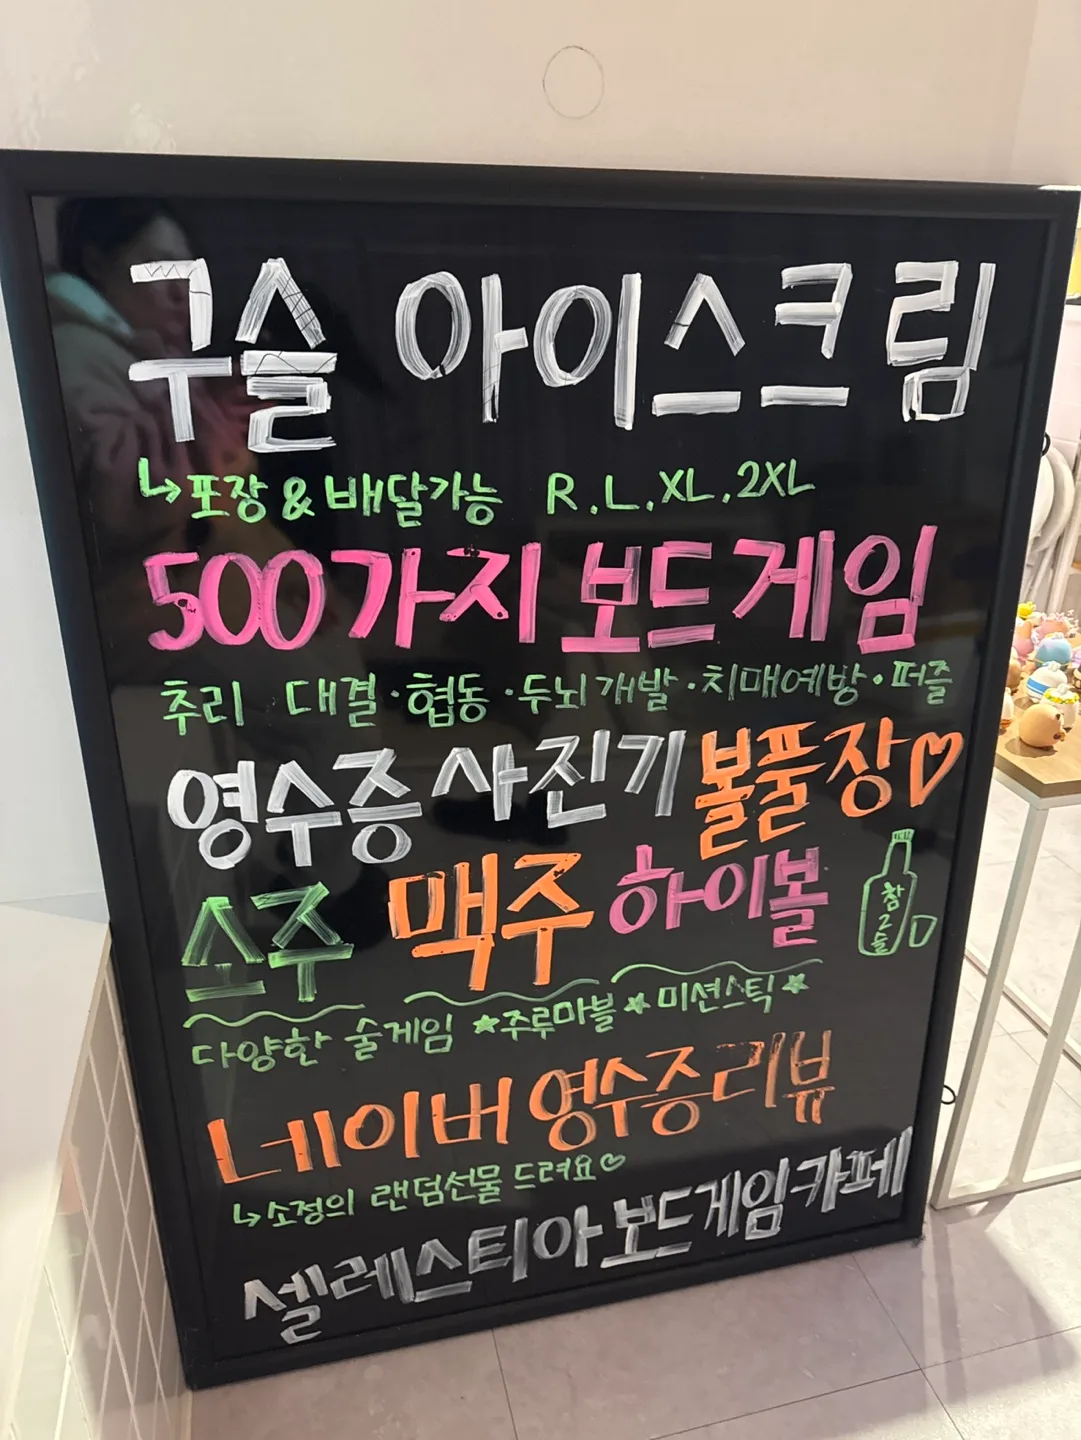 구슬 아이스크림
↳포장 & 배달가능 R.L.XL.2XL
500가지 보드게임
추리 대결·협동·두뇌개발·치매예방·퍼즐
영수증사진기 볼풀장♡
소주 맥주 하이볼
참
2
슬
다양한 술게임 ★주루마블★미션스틱★
네이버영수증리뷰
↳소정의 랜덤선물 드려요♡
셀레스티아보드게임카페